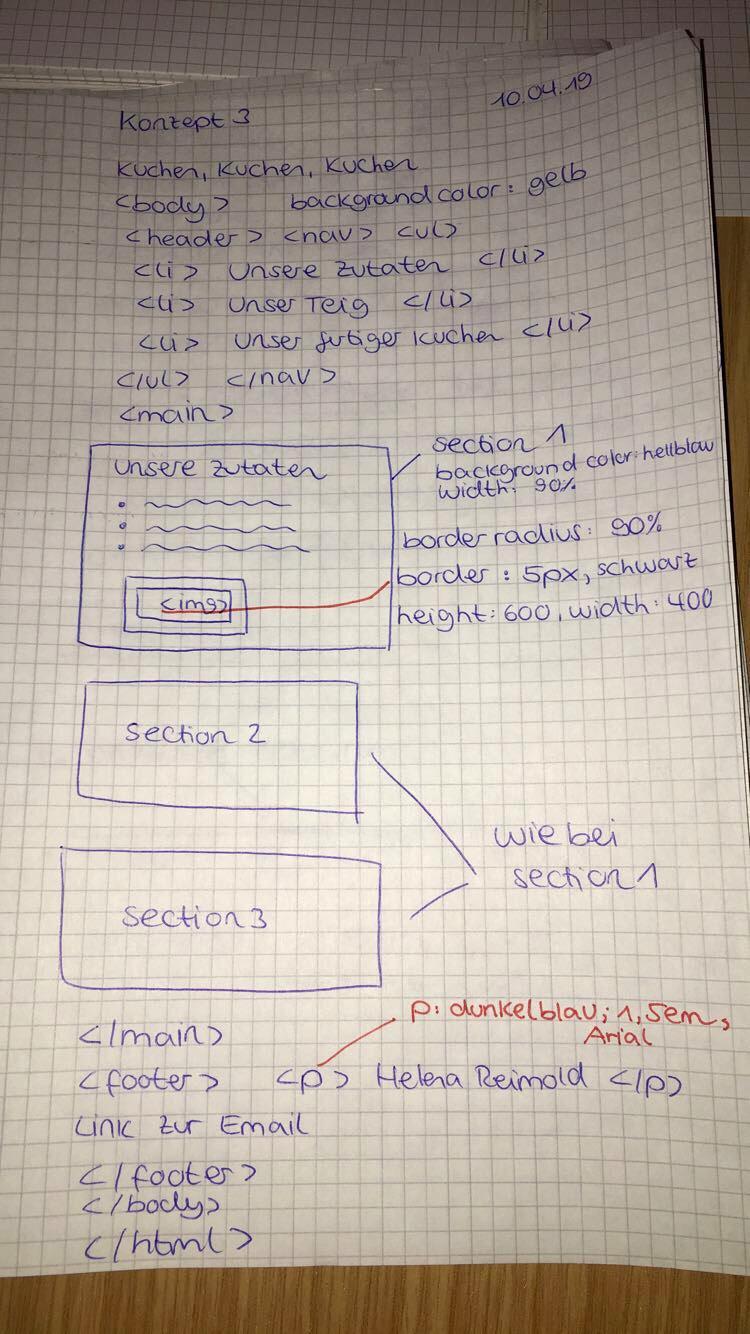 10.04.19
Konzept 3
Kuchen, Kuchen, Kuchen
<body> background color: gelb
<header> <nav> <ul>
<li> Unsere Zutaten </li>
<li> Unser Teig </li>
<li> Unser fertiger Kuchen </li>
</ul> </nav>
<main>
Unsere Zutaten
<img>
section 1
background color: hellblau
width: 90%
border radius: 90%
border: 5px, schwarz
height: 600, width: 400
Section 2
Section 3
wie bei
section 1
</main>
p: dunkelblau; 1,5em,
Arial
<footer> <p> Helena Reimold </p>
Link zur Email
</footer>
</body>
</html>